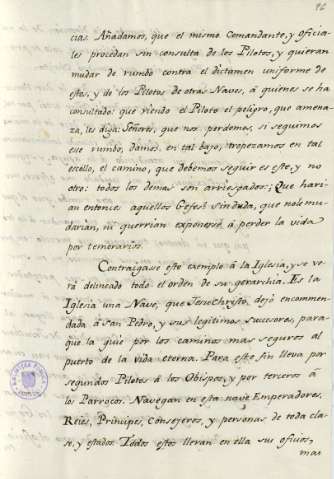 cias. Añadamos, que el mismo Comandante, y oficia-
les procedan sin consulta de los Pilotos, y quieran
mudar de rumbo contra el dictamen uniforme de
estos, y de los Pilotos de otras Naves, á quienes se ha
consultado: que viendo el Piloto el peligro, que amena-
za, les diga: Señores, que nos perdemos, si seguimos
ese rumbo, damos en tal bajo, tropezamos en tal
escollo, el camino, que debemos seguir es este, y no
otro: todos los demas son arriesgados: ¿Que hari-
an entonces aquellos Gefes? Sin duda, que no le mu-
darian, ni querrian exponerse á perder la vida
por temerarios.
Contraigase este exemplo á la Iglesia, y se ve-
rá delineado todo el orden de su gerarchia. Es la
Iglesia una Nave, que Jesu-Christo, dejó encomen-
dada á San Pedro, y sus legitimos sucesores, para
que la guie por los caminos mas seguros al
puerto de la vida eterna. Para este fin lleva por
segundos Pilotos á los Obispos, y por terceros á
los Parrocos. Navegan en esta nave Emperadores,
Reies, Principes, Consejeros, y personas de toda cla-
se, y estados. Todos estos llevan en ella sus oficios,
mas